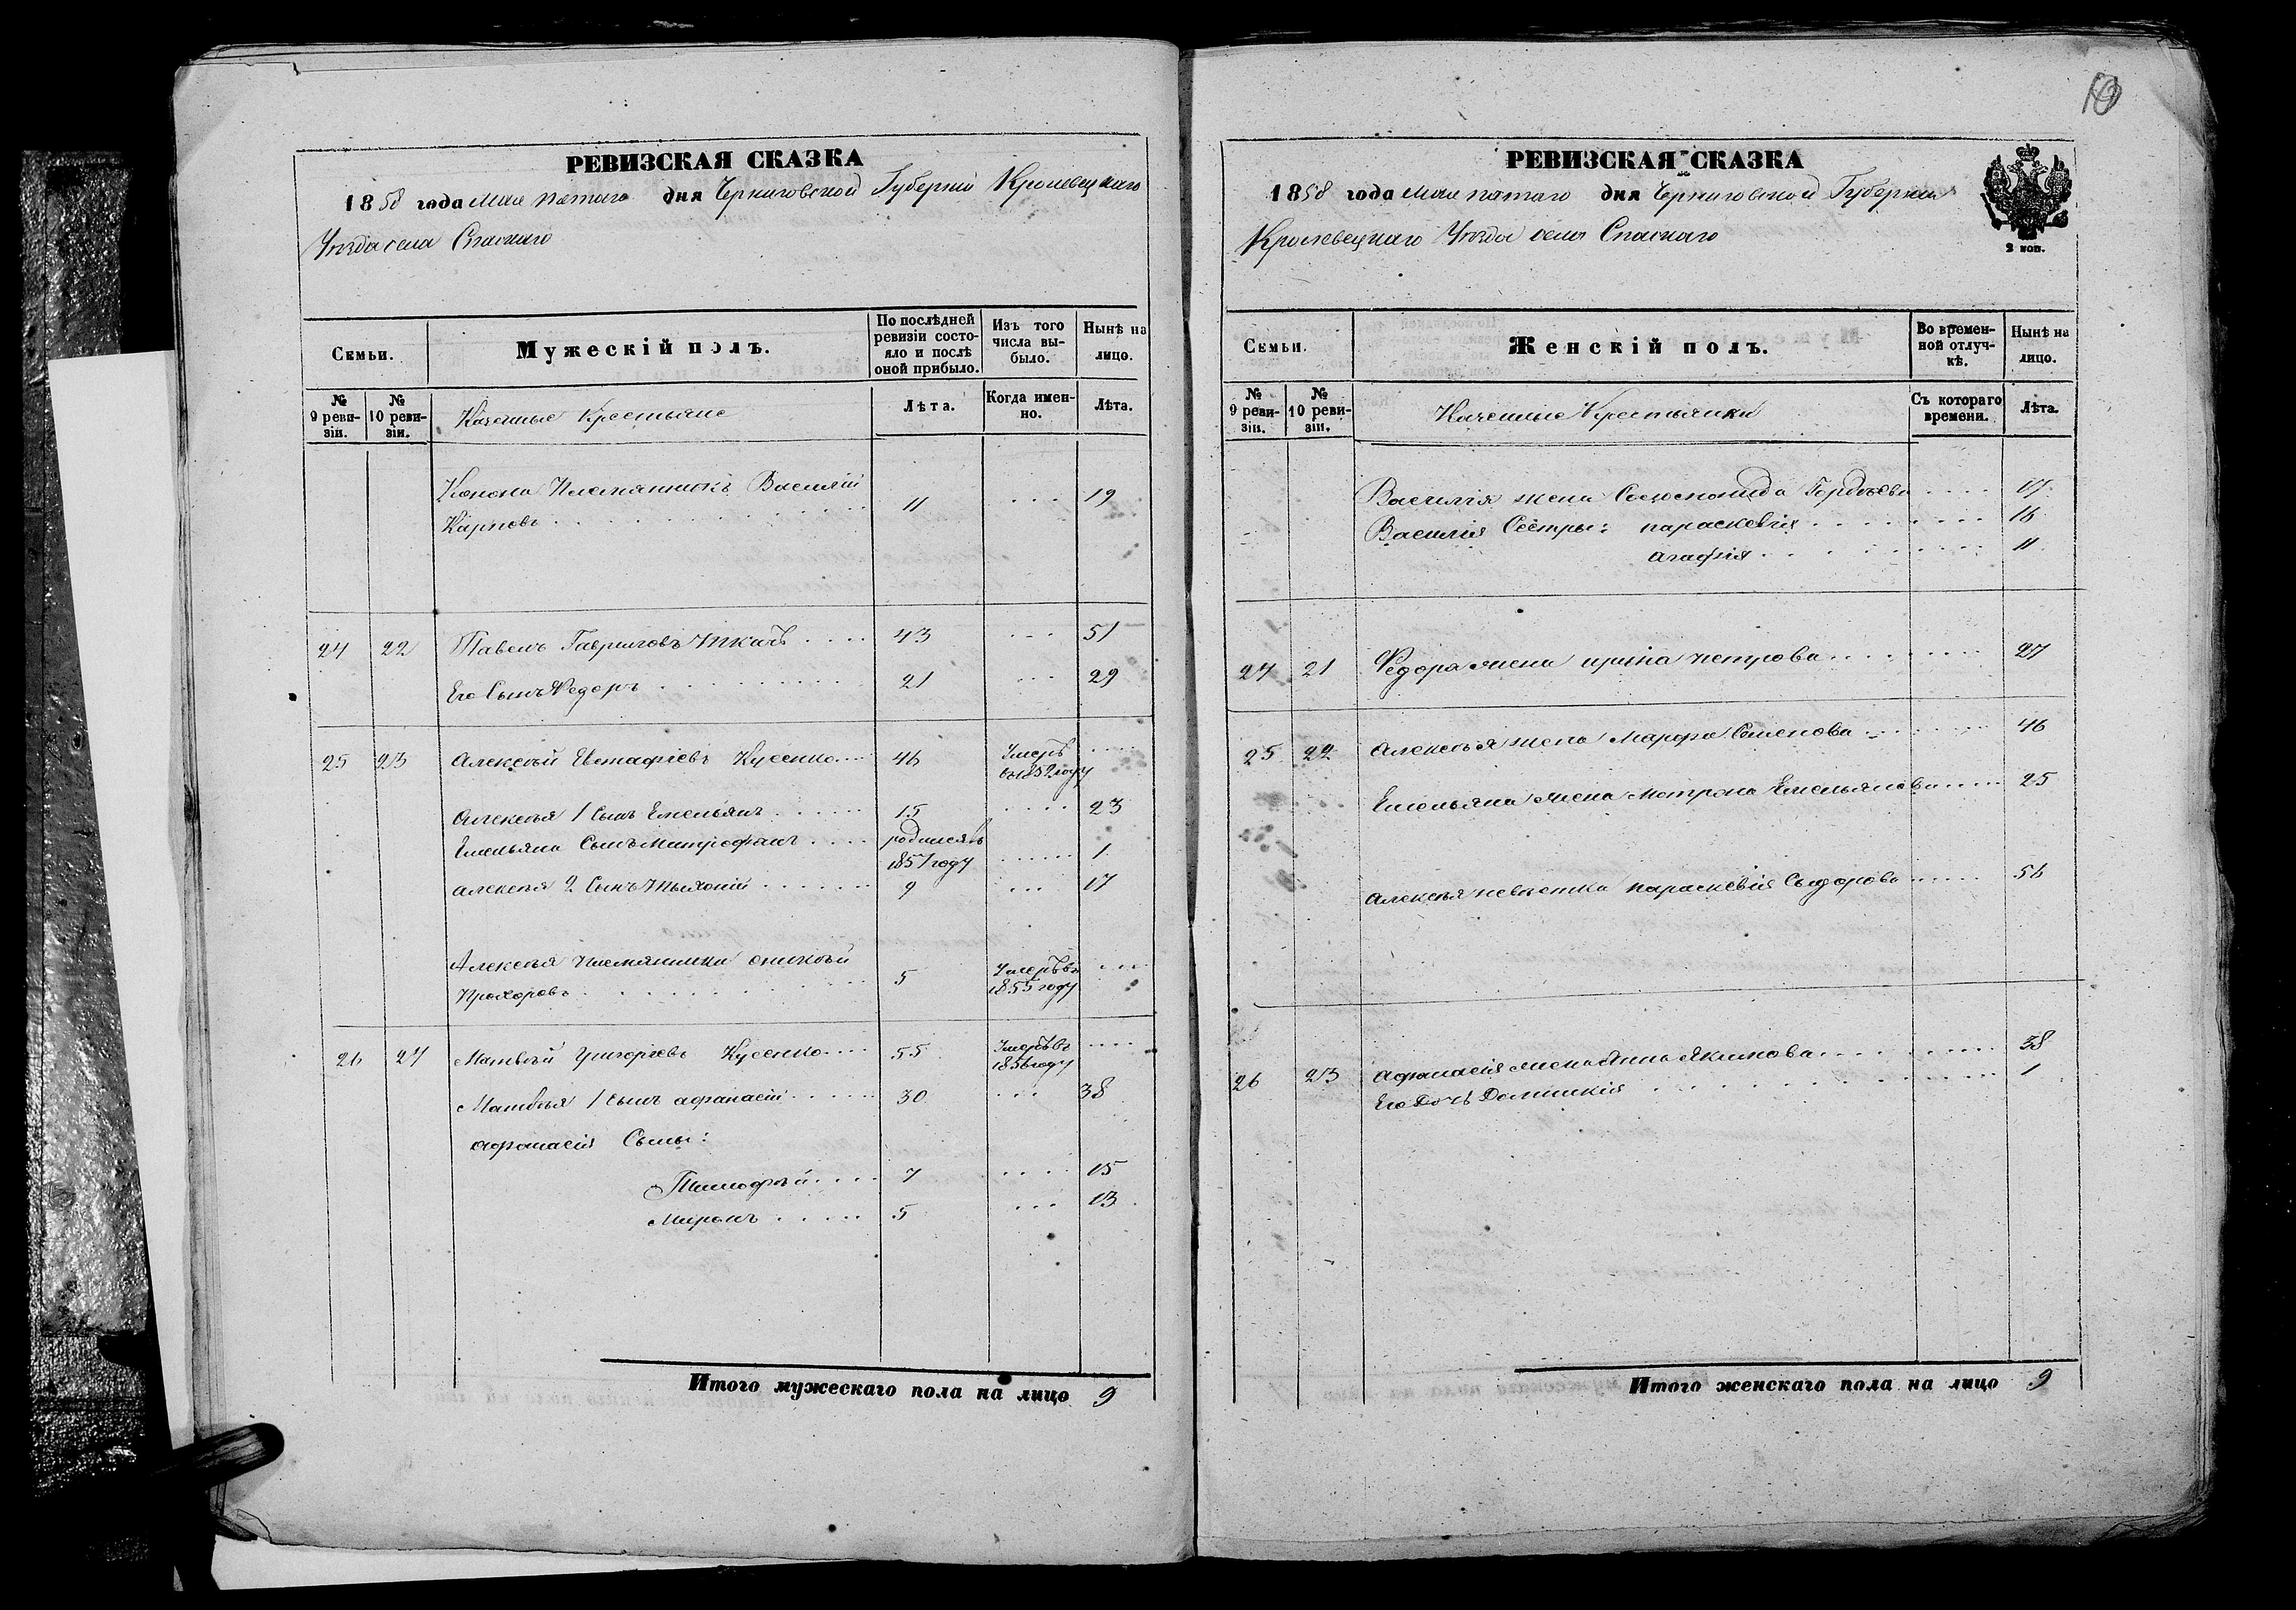 10
РЕВИЗСКАЯ СКАЗКА
1858 года Мая пятаго дня Черниговской Губерніи Кролевецкаго
Уѣзда села Спаскаго
Семьи.
Мужескій полъ.
По послѣдней ревизіи состояло и послѣ оной прибыло.
Изъ того числа выбыло.
Нынѣ на лицо.
№ 9 ревизіи.
№ 10 ревизіи.
Казенные Крестьяне
Лѣта.
Когда именно.
Лѣта.
Конона Племянникъ Василій
Карповъ 11 19
24 22 Павелъ Гавриловъ Ткачъ 43 51
Его Сынъ Федоръ 21 29
25 23 Алексѣй Евстафіевъ Кусенко 46 Умеръ въ 1852 году
Алексѣя 1 Сынъ Емельянъ 15 23
Емельяна Сынъ Митрофанъ родился въ 1857 году 1
Алексѣя 2 Сынъ 9 17
Алексѣя Племянникъ
Прохоровъ 5 Умеръ въ 1855 году
26 24 Матвѣй Григорьевъ Кусенко 55 Умеръ въ 1856 году
Матвѣя 1 сынъ афанасій 30 38
афанасія Сыны:
Тимофѣй 7 15
Миронъ 5 13
Итого мужескаго пола на лицо 9
РЕВИЗСКАЯ СКАЗКА
1858 года Мая пятаго дня Черниговской Губерніи
Кролевецкаго Уѣзда села Спаскаго
2 коп.
Семьи.
Женскій полъ.
Во временной отлучкѣ.
Нынѣ на лицо.
№ 9 ревизіи.
№ 10 ревизіи.
Казенные Крестьянки
Съ котораго времени.
Лѣта.
Василія жена Гордѣева 17
Василія Сестры: параскевія 16
агафія 11
24 21 Федора жена ирина петрова 27
25 22 Алексѣя жена Марфа Семенова 46
Емельяна жена Матрона Емельянова 25
Алексѣя невѣстка параскевія Сыдорова 56
26 23 Афанасія жена Анна Якимова 38
Его Дочь Домникія 1
Итого женскаго пола на лицо 9